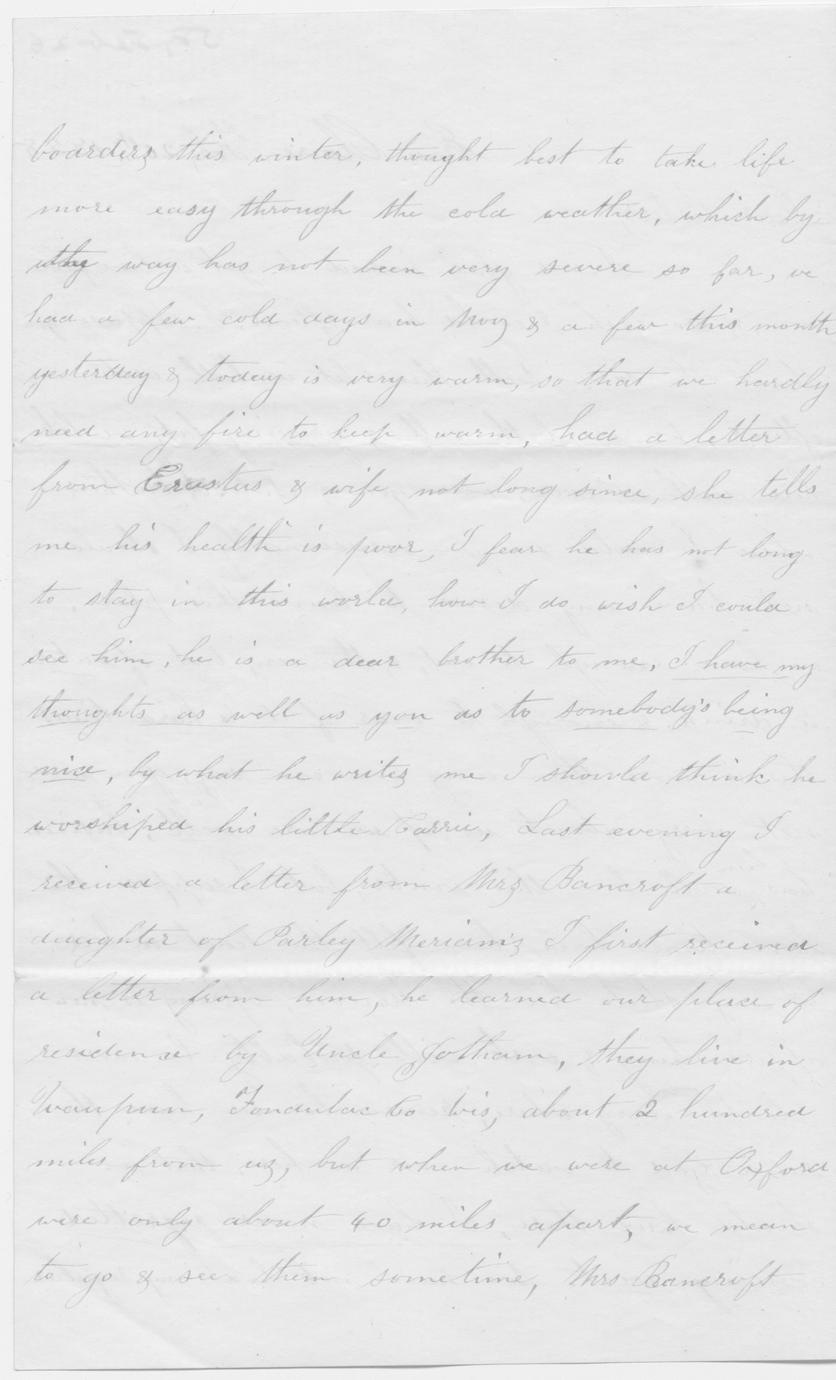 boarders this winter, thought best to take life
more easy through the cold weather, which by
the way has not been very severe so far, we
had a few cold days in Nov, & a few this month
yesterday & today is very warm, so that we hardly
need any fire to keep warm, had a letter
from Erastus & wife not long since, she tells
me his health is poor, I fear he has not long
to stay in this world, how I do wish I could
see him, he is a dear brother to me, I have my
thoughts as well as you as to somebody's being
nice, by what he writes me I should think he
worshiped his little Carrie, Last evening I
received a letter from Mrs Bancroft a
daughter of Parley Meriam's I first received
a letter from him, he learned our place of
residence by Uncle Jotham, they live in
Waupun, Fondulac Co Wis, about 2 hundred
miles from us, but when we were at Oxford
were only about 40 miles apart, we mean
to go & see them sometime, Mrs Bancroft